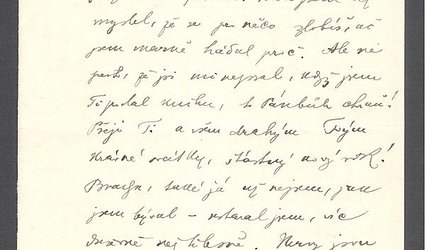 myslel, že se pro něco zlobíš, ač
jsem marně hádal proč. Ale ne
že jsi mi nepsal, když jsem
Ti poslal knihu, to Pánbůh chraň!
Přeji Ti a všem drahým Tvým
krásné svátky, šťastný nový rok!
také já už nejsem, jak
jsem býval – jsem, víc
duševně než tělesně. Nervy jsou